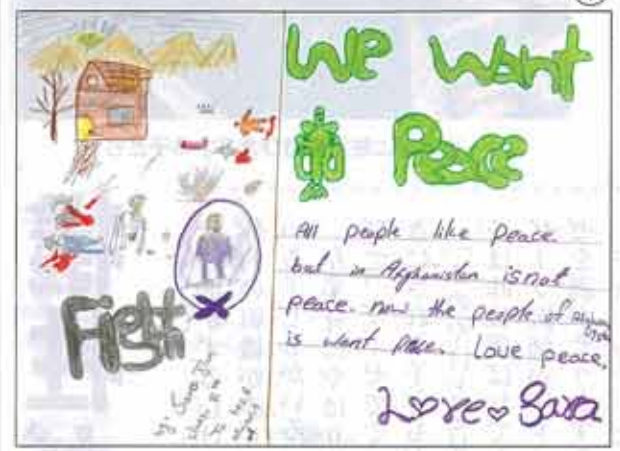 We Want
Peace
All people like peace.
but in Afghanistan is not
peace. now the people of Afghanistan
is want peace. Love peace.
Love Sara
Fight
by: Sara